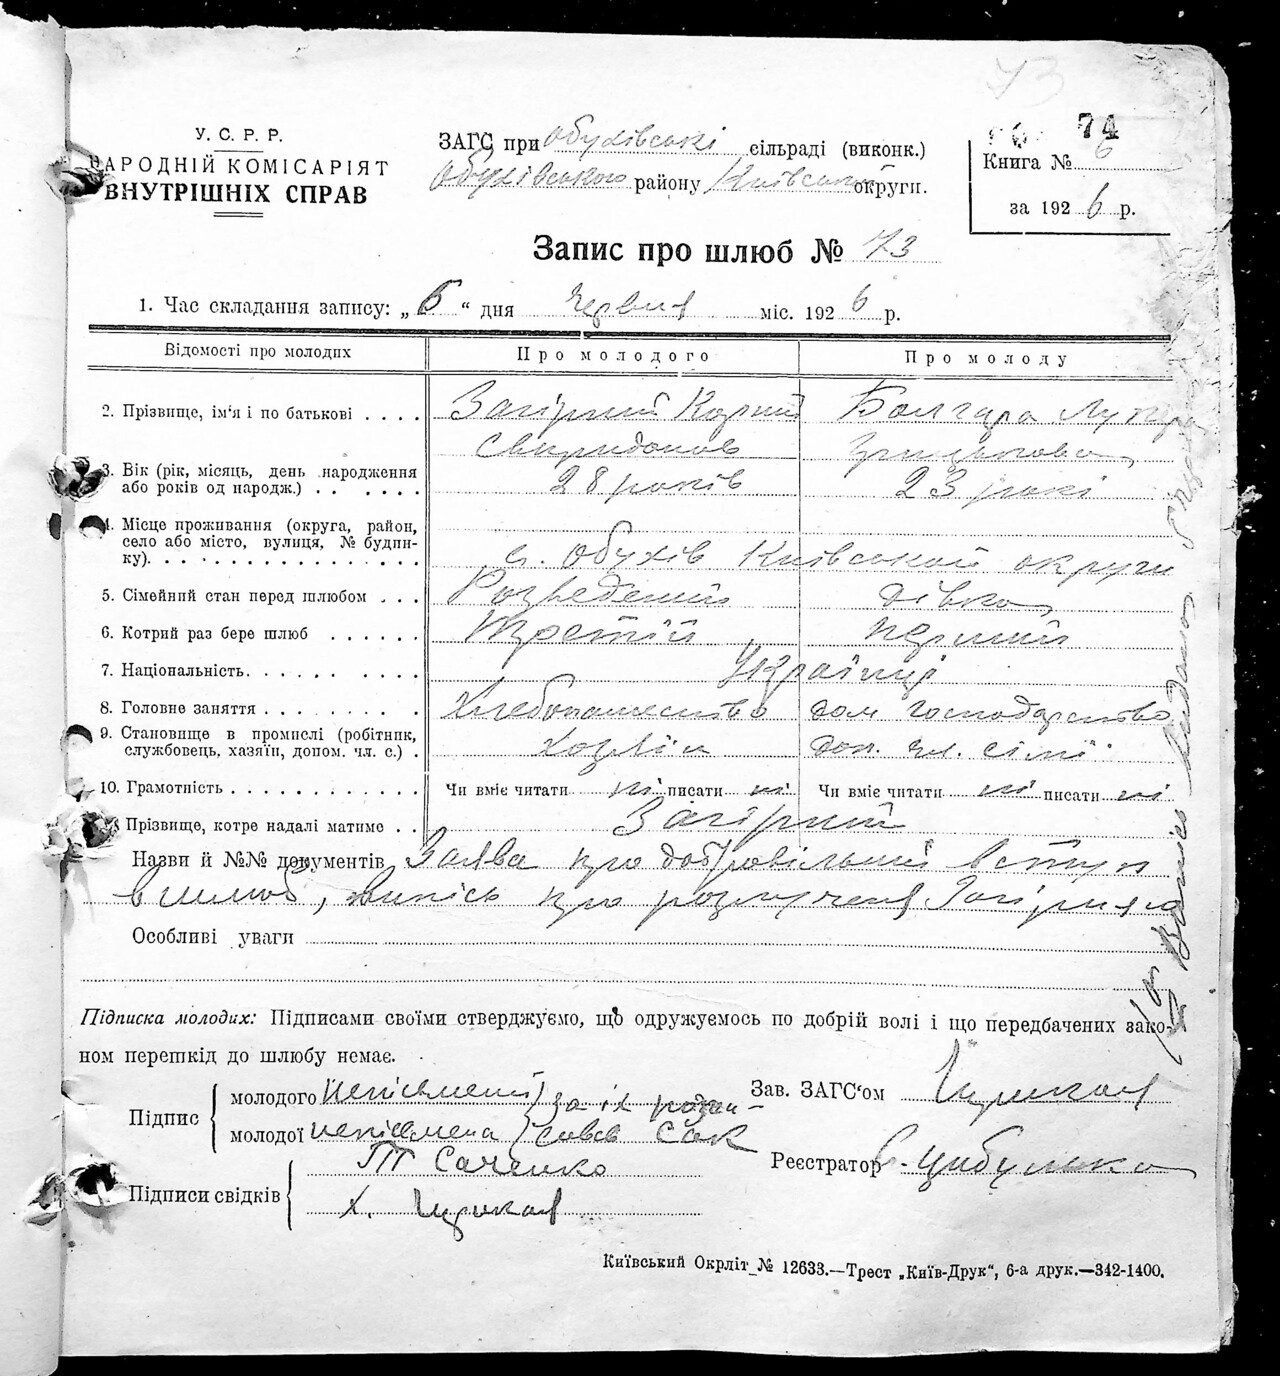 73
74
У. С. Р. Р.
НАРОДНІЙ КОМІСАРІЯТ
ВНУТРІШНІХ СПРАВ
ЗАГС при Обухівські сільраді (виконк.)
Обухівського району Київської округи.
Книга № 6
за 1926 р.
Запис про шлюб № 73
1. Час складання запису: „6“ дня червня міс. 1926 р.
Відомості про молодих Про молодого Про молоду
2. Прізвище, ім'я і по батькові . . . . Загірний Корний Болгара Лукер
Свиридонов Грицькова
3. Вік (рік, місяць, день народження
або років од народж.) . . . . . . 28 років 23 рокі
4. Місце проживання (округа, район,
село або місто, вулиця, № будин-
ку). . . . . . . . . . . . . . . . с. Обухів Київської округи
5. Сімейний стан перед шлюбом . . . Розведений дівка
6. Котрий раз бере шлюб . . . . . . третій перший
7. Національність. . . . . . . . . . Українці
8. Головне заняття . . . . . . . . . Хлебопашество дом господарство
9. Становище в промислі (робітник,
службовець, хазяїн, допом. чл. с.) . хозяїн доп. чл. сімї
10. Грамотність . . . . . . . . . . . Чи вміє читати ні писати ні Чи вміє читати ні писати ні
Прізвище, котре надалі матиме . . Загірний
Назви й №№ документів Заява про добровільний вступ
в шлюб, випісь про розлучення Загірнього
Особливі уваги
Підписка молодих: Підписами своїми стверджуємо, що одружуємось по добрій волі і що передбачених зако-
ном перешкід до шлюбу немає.
Підпис
молодого неписьмений за іх розпи-
молодої неписьмена савсь Сак
Підписи свідків
Саченко
Х.
Зав. ЗАГС'ом
Реєстратор Цибулько
Київський Окрліт № 12633.—Трест „Київ-Друк“, 6-а друк.—342-1400.